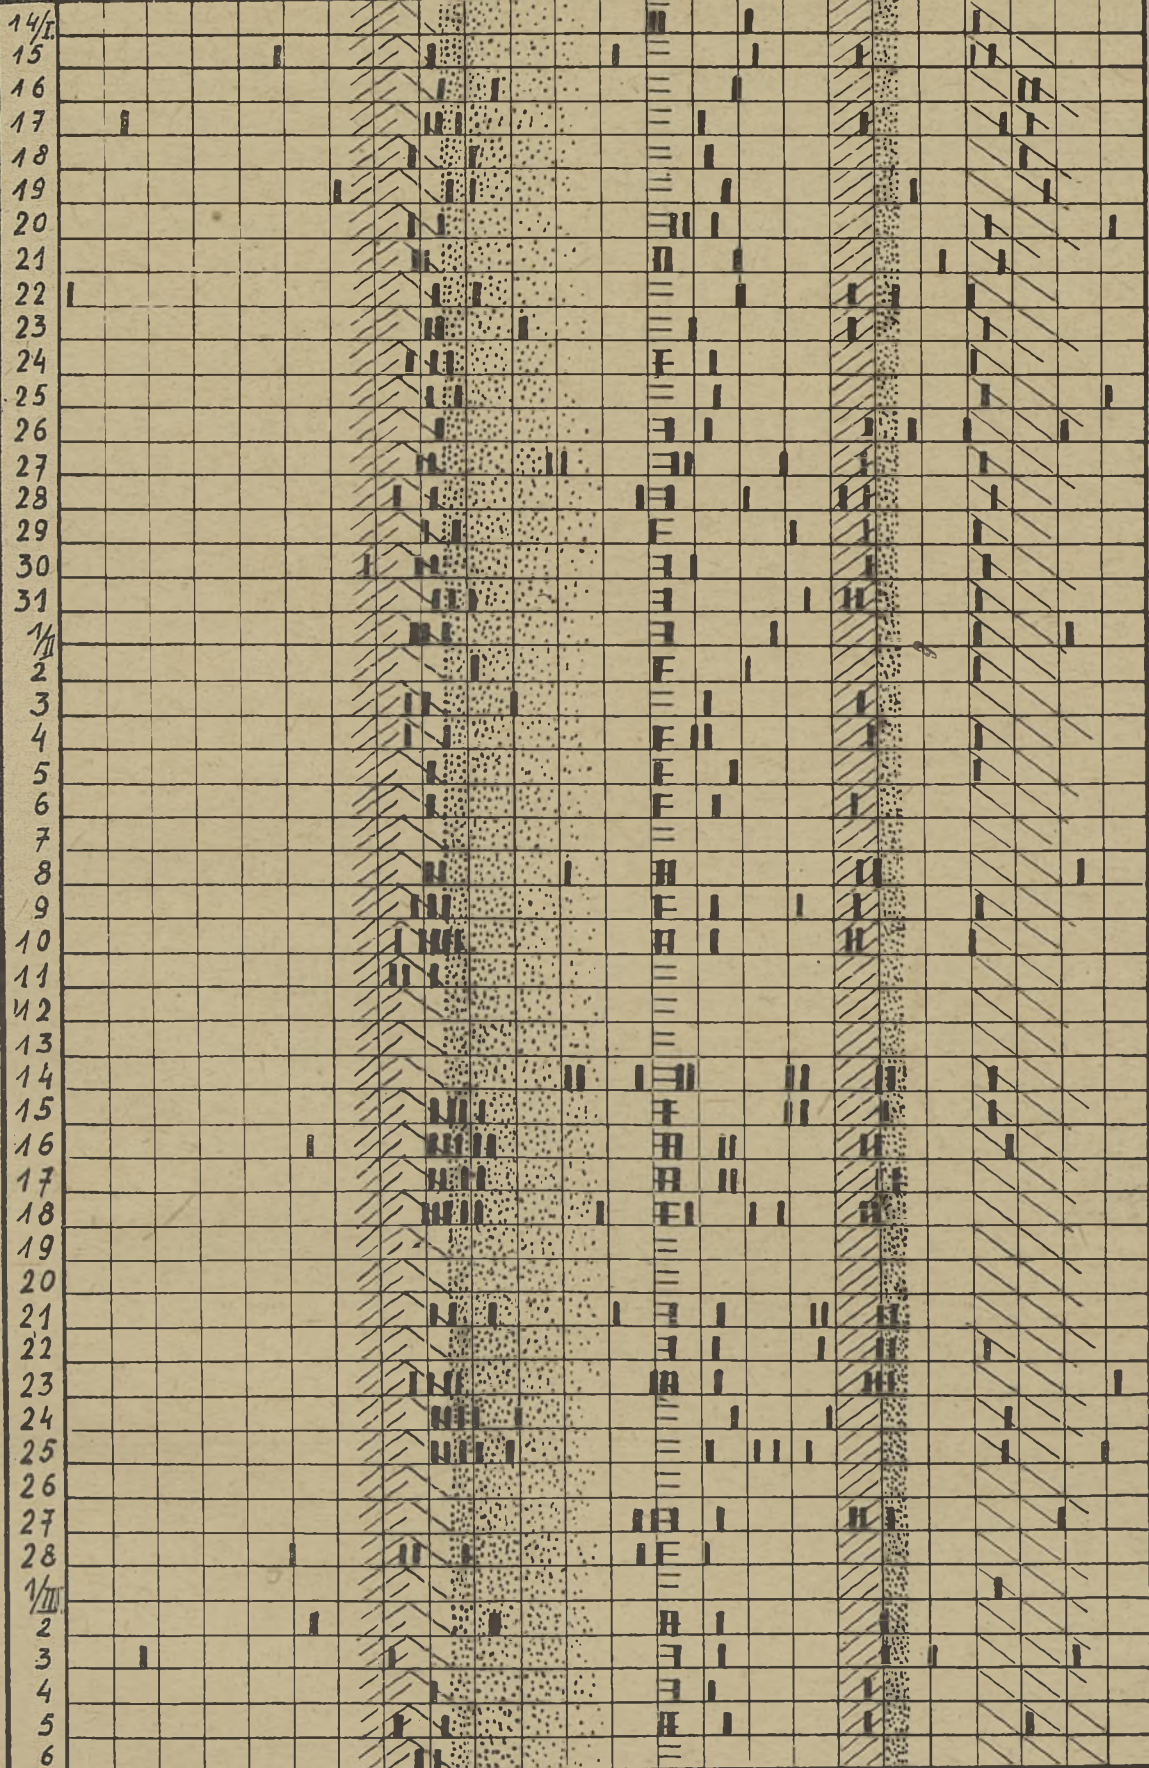 14/I.
15
16
17
18
19
20
21
22
23
24
25
26
27
28
29
30
31
1/II
2
3
4
5
6
7
8
9
10
11
12
13
14
15
16
17
18
19
20
21
22
23
24
25
26
27
28
1/III.
2
3
4
5
6